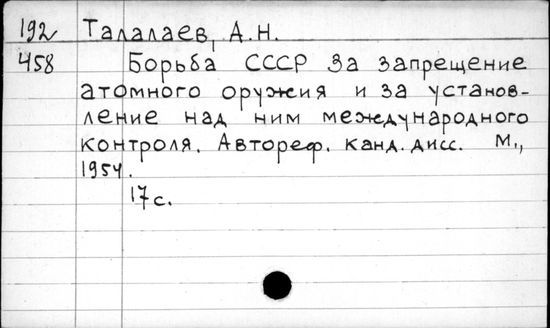 192 Талалаев, А.Н.
458 Борьба СССР за запрещение
атомного оружия и за установ-
ление над ним международного
контроля. Автореф. канд. дисс. М.,
1954.
17 с.